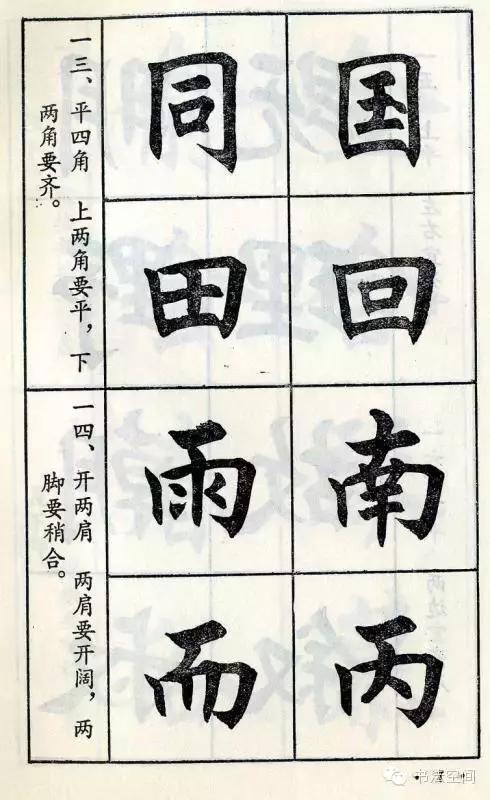 国
回
南
丙
同
田
雨
而
一三、平四角 上两角要平，下
两角要齐。
一四、开两肩 两肩要开阔，两
脚要稍合。
书法空间